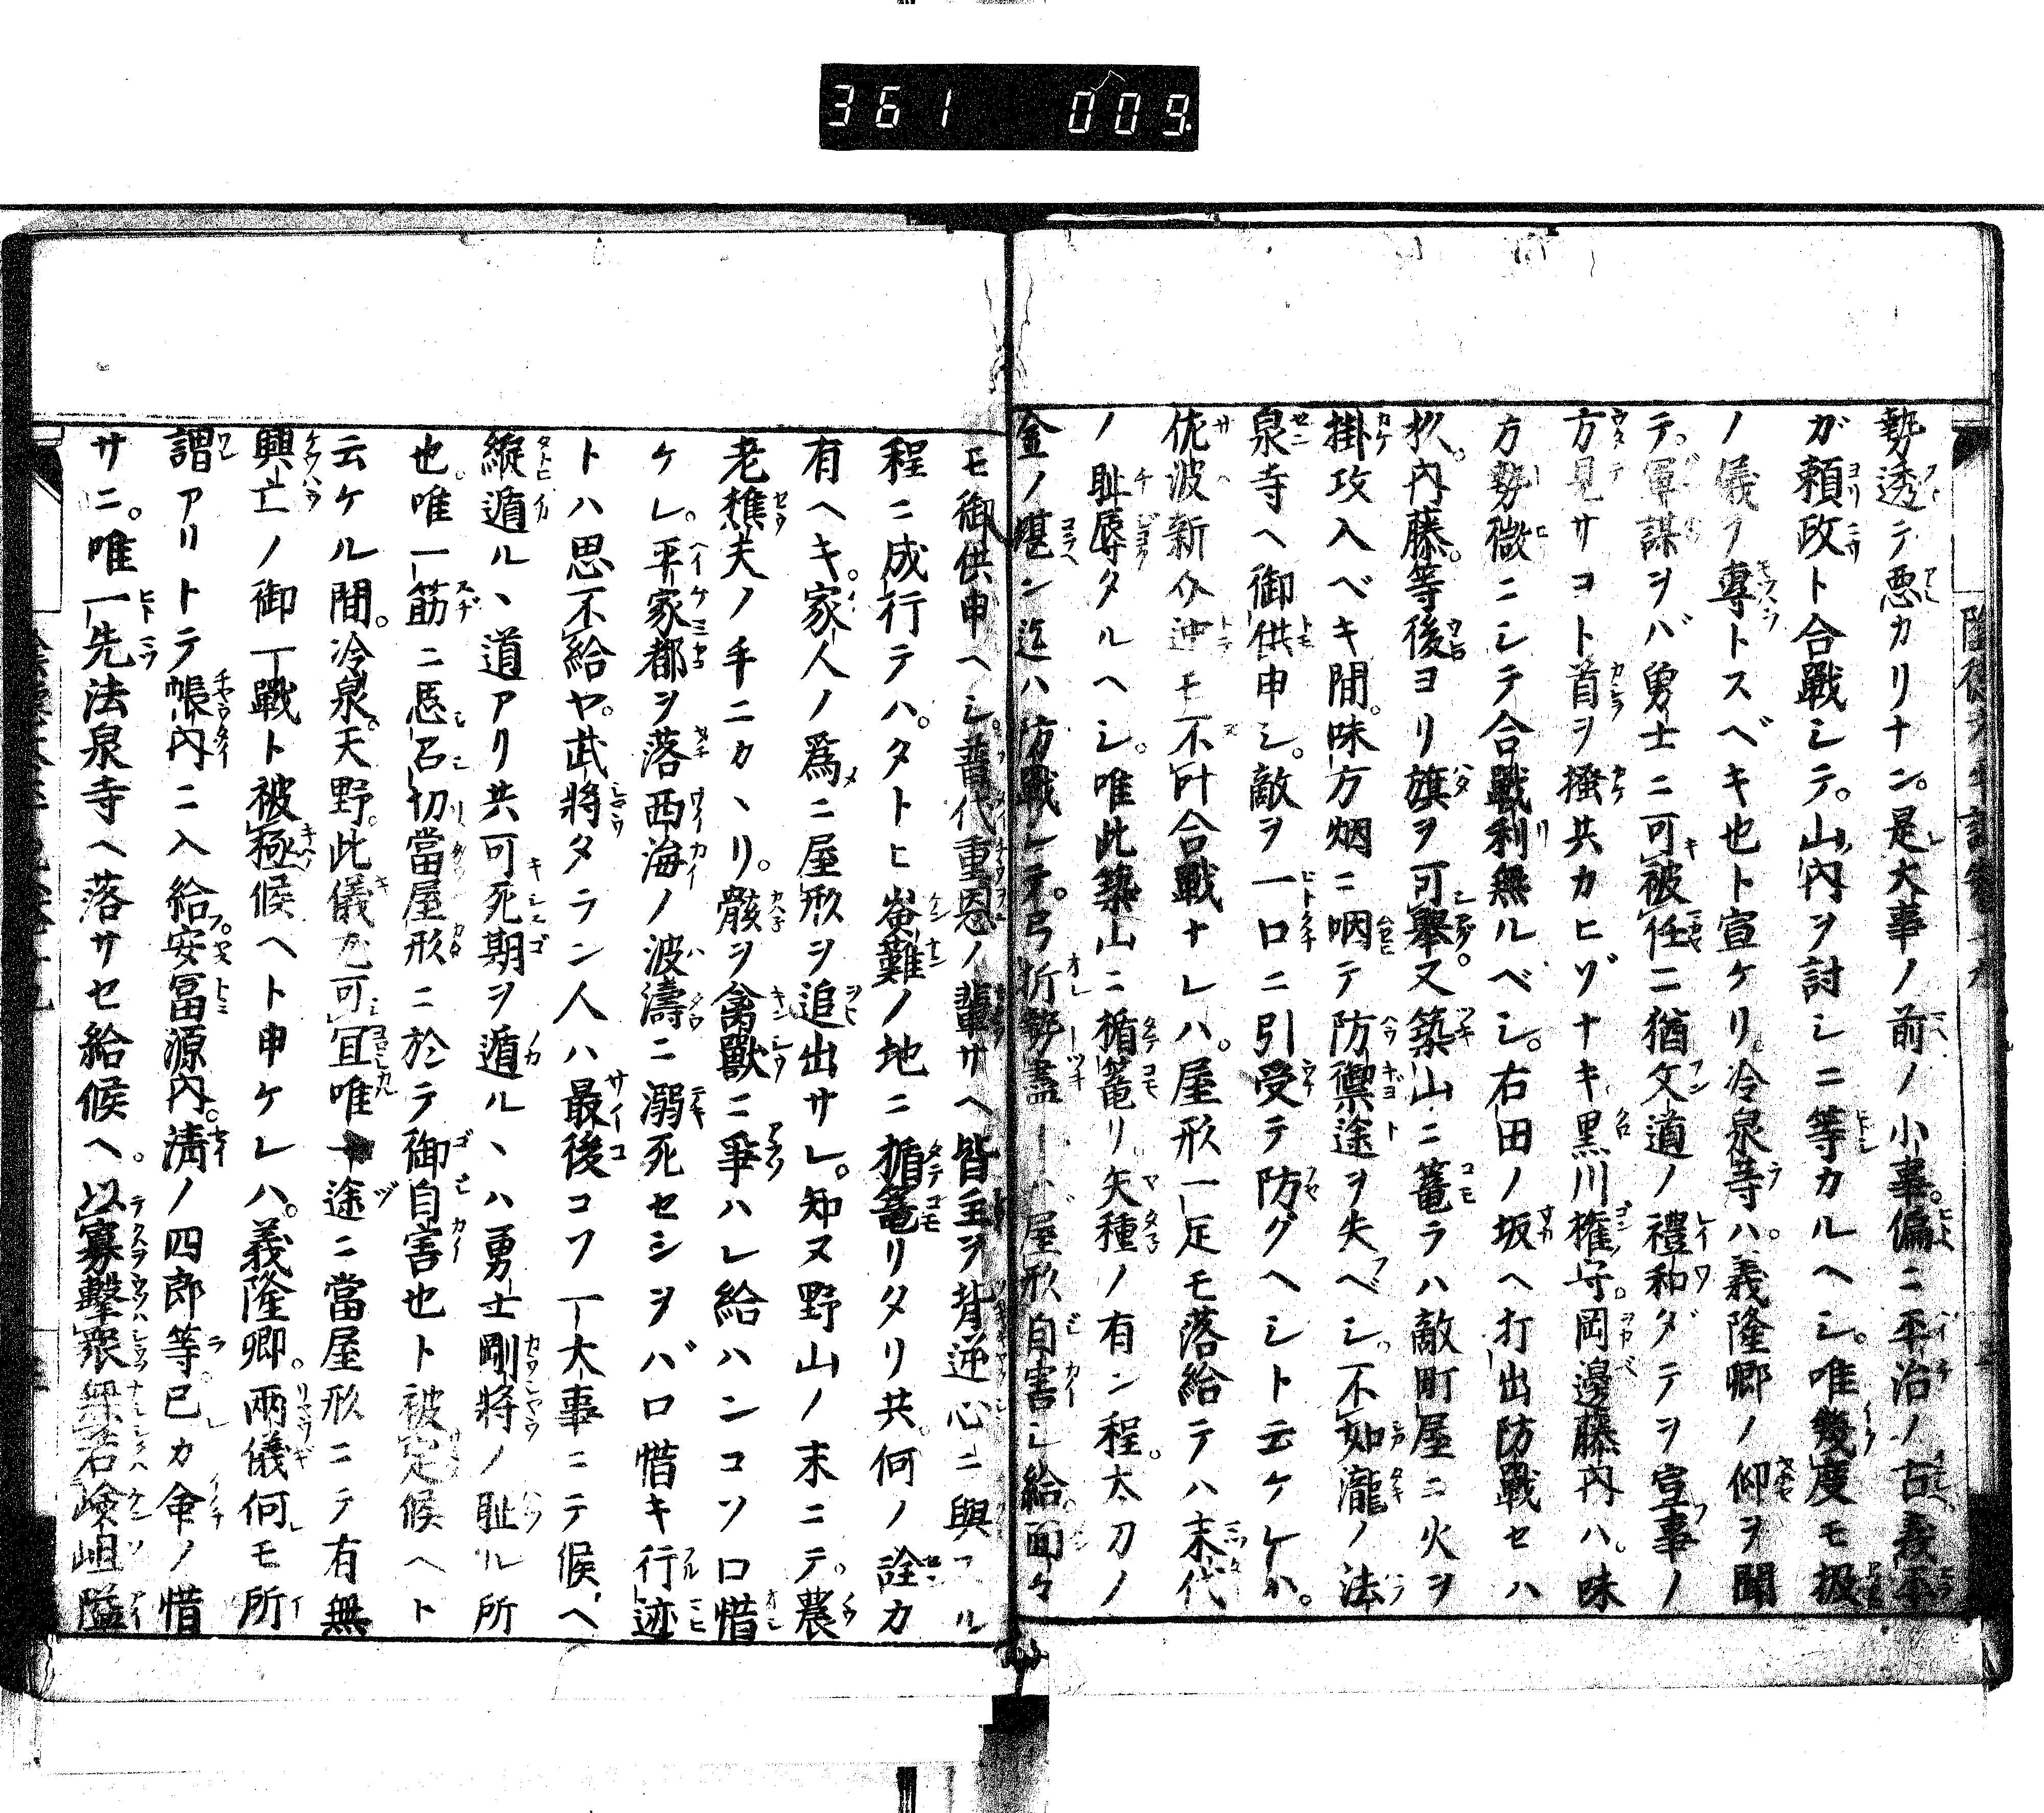 361 009
勢透テ悪カリナン。是大事ノ前ノ小事。偏ニ平治ノ古義平
ガ頼政ト合戰シテ。山内ヲ討シニ等カルヘシ。唯幾度モ扱
ノ儀ヲ專トスベキ也ト宣ケリ。冷泉等ハ。義隆卿ノ仰ヲ聞
テ。軍謀ヲバ勇士ニ可被任ニ猶文道ノ禮和ダテヲ宣事ノ
方見サヨト首ヲ搔共カヒゾナキ黒川権守。岡邊藤内ハ。味
方勢微ニシテ合戰利無ルベシ。右田ノ坂ヘ打出防戰セハ
杦。内藤。等後ヨリ旗ヲ可舉。又築山ニ篭ラハ敵町屋ニ火ヲ
掛攻入ベキ間。味方烟ニ咽テ防禦途ヲ失ベシ。不如瀧ノ法
泉寺ヘ御供申シ。敵ヲ一口ニ引受テ防グヘシト云ケレハ。
佐波新介迚モ不叶合戰ナレハ。屋形一足モ落給テハ末代
ノ耻辱タルヘシ。唯此築山ニ楯篭リ。矢種ノ有ン程。太刀ノ
金ノ堪ン迄ハ防戰シテ。弓折勢盡ハ屋形自害シ給。面々
モ御供申ヘシ。普代重恩ノ輩サヘ皆主ヲ背逆心ニ與スル
程ニ成行テハ。タトヒ嶮難ノ地ニ楯篭リタリ共。何ノ詮カ
有ヘキ。家人ノ爲ニ屋形ヲ追出サレ。知ヌ野山ノ末ニテ。農
老樵夫ノ手ニカヽリ。骸ヲ禽獸ニ爭ハレ給ハンコソ口惜
ケレ。平家都ヲ落西海ノ波濤ニ溺死セシヲバ口惜キ行迹
トハ思不給ヤ。武將タラン人ハ最後コフ一大事ニテ候ヘ
縱遁ルヽ道アリ共可死期ヲ遁ルヽハ勇士剛將ノ耻ル所
也。唯一筋ニ思召切當屋形ニ於テ御自害也ト被定候ヘト
云ケル間。冷泉。天野。此儀尤可宜唯一途ニ當屋形ニテ有無
興亡ノ御一戰ト被極候ヘト申ケレハ。義隆卿。兩儀何モ所
謂アリトテ帳内ニ入給。安冨源内。淸ノ四郎等。已カ命ノ惜
サニ。唯一先法泉寺ヘ落サセ給候ヘ。以寡擊衆無若嶮岨隘